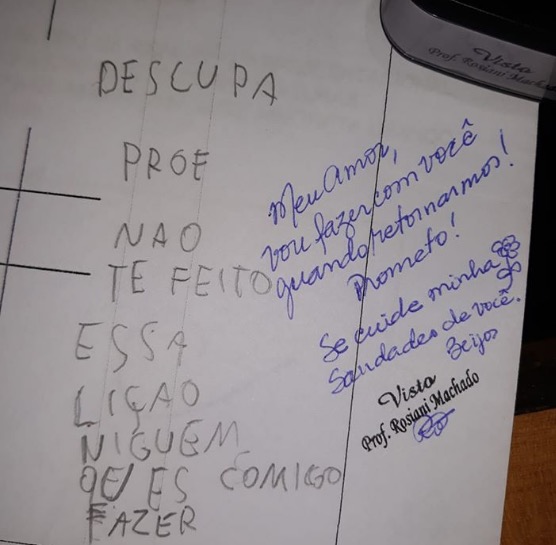 DESCUPA
PROF
NAO
TE FEITO
ESSA
LIÇAO
NIGUEM
QE ES COMIGO
FAZER
Meu Amor,
vou fazer com você
quando retornarmos!
Prometo!
Se cuide minha
Saudades de você.
Beijos
Visto
Prof. Rosiani Machado
Visto
Prof. Rosiani Machado